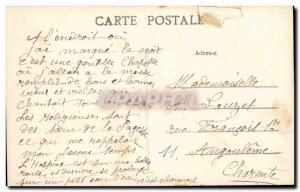 CARTE POSTALE
Adresse
A l'endroit où
j'ai marqué la croix
c'est une gentille Chapelle
où j'allais à la messe
remplit de bons et bonnes
vieux et vieilles qui
chantait tous
Les religieuses sont
des Sœur de la Sagesse
ce qui me rappelait
mon jeune temps
L'Hospice est sur une belle
route, et derrière se prolonge
sur un petit charmant
Mademoiselle
rue François Ier
11 Angoulême
Charente